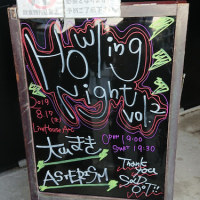 Howling
Night vol.2
2019
8.17(土)
LiveHouse Arc
OPEN 19:00
START 19:30
大山まき
ASTERISM
Thank
you
SOLD
OUT!!